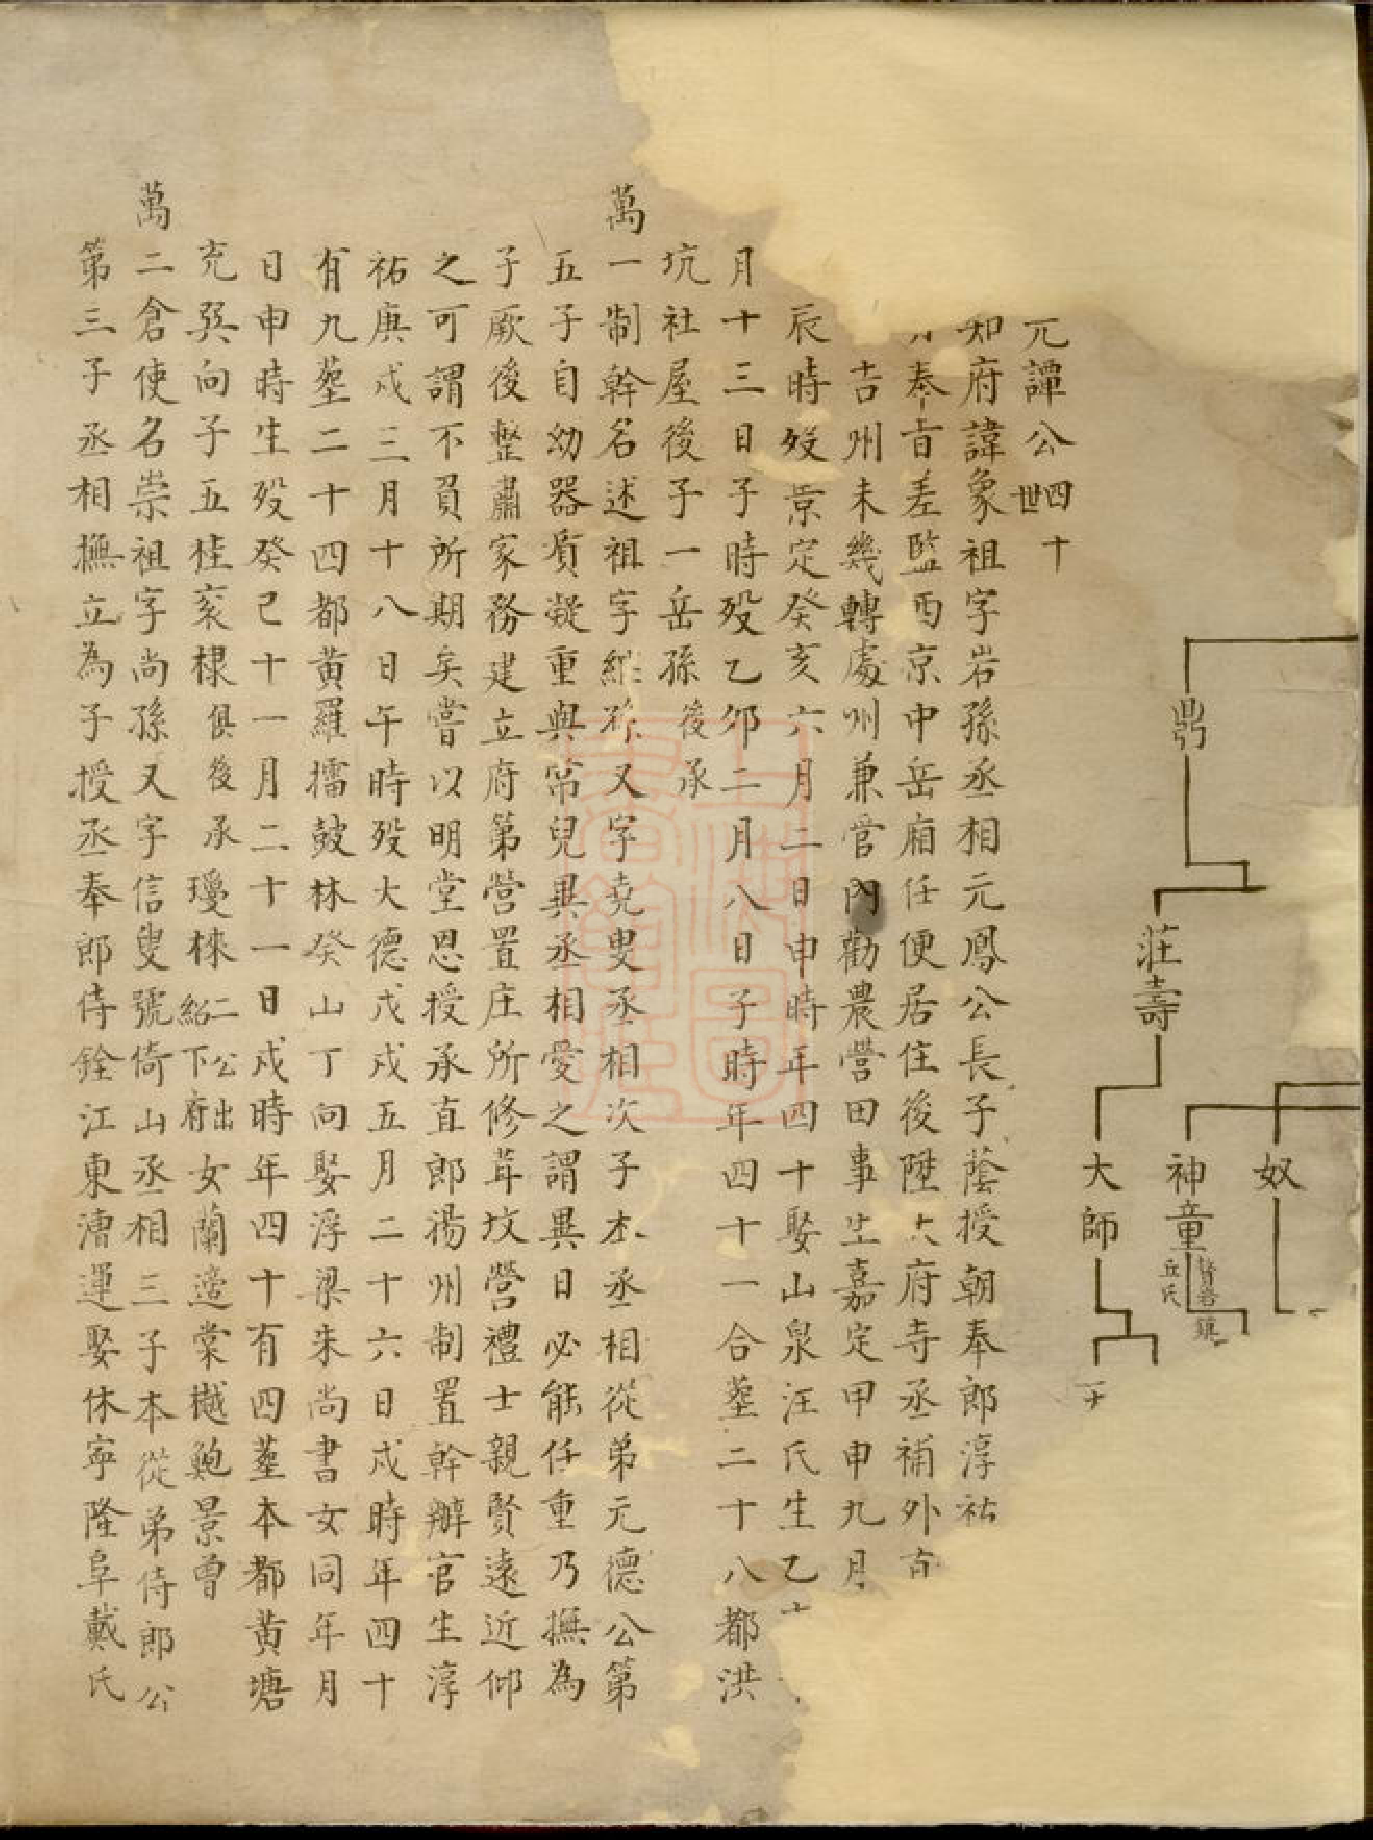 奴
神童
丘氏
鎮
大師
莊壽
鼎
元譚公四十世
知府諱象祖字岩孫丞相元鳳公長子蔭授朝奉郎淳祐
奉旨差監西京中岳廟任便居住後陞大府寺丞補外
吉州未幾轉處州兼管內勸農營田事生嘉定甲申九月
辰時歿景定癸亥六月二日申時年四十娶山泉汪氏生乙
月十三日子時歿乙卯二月八日子時年四十一合塟二十八都洪
坑社屋後子一岳孫後承
萬一制幹名述祖字繼孫又字堯叟丞相次子本丞相從弟元德公第
五子自幼器質凝重與常兒異丞相愛之謂異日必能任重乃撫為
子厥後整肅家務建立府第營置庄所修茸坟營禮士親賢遠近仰
之可謂不負所期矣嘗以明堂恩授承直郎揚州制置幹辦官生淳
祐庚戌三月十八日午時歿大德戊戌五月二十六日戌時年四十
有九塟二十四都黃羅擂鼓林癸山丁向娶浮梁朱尚書女同年月
日申時生歿癸巳十一月二十一日戌時年四十有四塟本都黃塘
充巽向子五桂袤棣俱後承瓊棶二公出紹下府女蘭適棠樾鮑景曾
萬二倉使名崇祖字尚孫又字信叟號倚山丞相三子本從弟侍郎公
第三子丞相撫立為子授丞奉郎侍銓江東漕運娶休寧隆阜戴氏